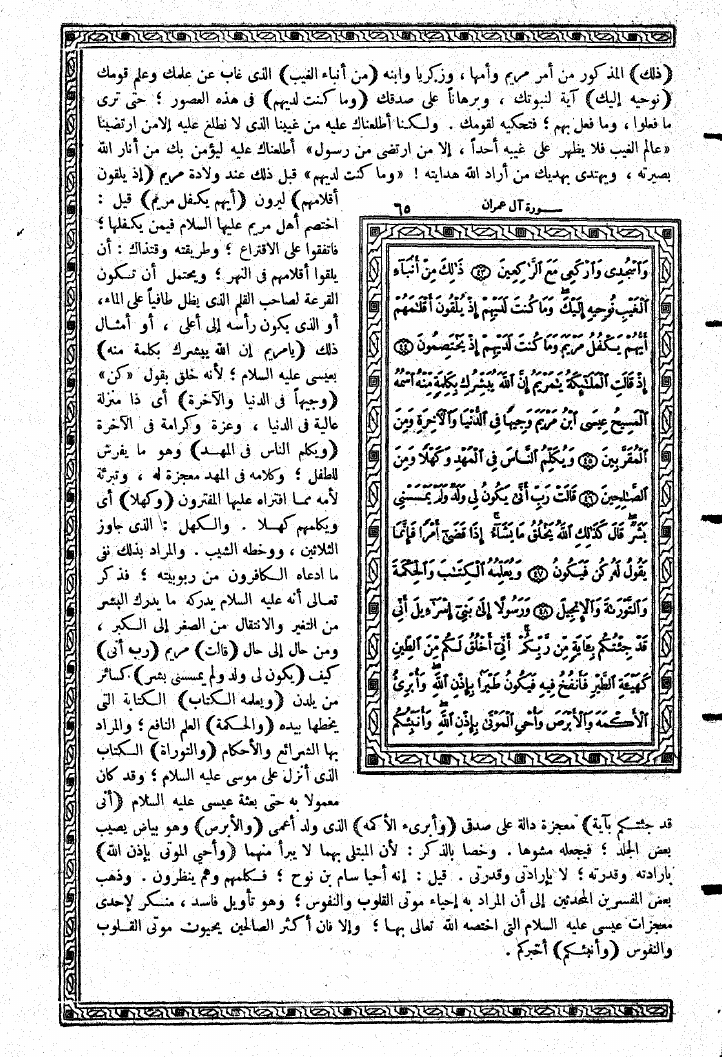 (ذلك) المذكور من أمر مريم وأمها ، وزكريا وابنه (من أنباء الغيب) الذى غاب عن علمك وعلم قومك
(نوحيه إليك) آية لنبوتك ، وبرهاناً على صدقك (وما كنت لديهم) فى هذه العصور ؛ حتى ترى
ما فعلوا ، وما فعل بهم ؛ فتحكيه لقومك . ولكنا أطلعناك عليه من غيبنا الذى لا نطلع عليه إلا من ارتضينا
«عالم الغيب فلا يظهر على غيبه أحداً ، إلا من ارتضى من رسول» أطلعناك عليه ليؤمن بك من أنار الله
بصيرته ، ويهتدى بهديك من أراد الله هدايته ! «وما كنت لديهم» قبل ذلك عند ولادة مريم (إذ يلقون
أقلامهم) ليرون (أيهم يكفل مريم) قيل :
اختصم أهل مريم عليها السلام فيمن يكفلها ؛
فاتفقوا على الاقتراع ؛ وطريقته وقتذاك : أن
يلقوا أقلامهم فى النهر ؛ ويحتمل أن تكون
القرعة لصاحب القلم الذى يظل طافياً على الماء،
أو الذى يكون رأسه إلى أعلى ، أو أمثال
ذلك (يا مريم إن الله يبشرك بكلمة منه)
بعيسى عليه السلام ؛ لأنه خلق بقول «كن»
(وجيهاً فى الدنيا والآخرة) أى ذا منزلة
عالية فى الدنيا ، وعزة وكرامة فى الآخرة
(ويكلم الناس فى المهد) وهو ما يفرش
للطفل ؛ وكلامه فى المهد معجزة له ، وتبرئة
لأمه مما افتراه عليها المفترون (وكهلا) أى
ويكلمهم كهلا . والكهل : الذى جاوز
الثلاثين ، ووخطه الشيب . والمراد بذلك نفى
ما ادعاه الكافرون من ربوبيته ؛ فذكر
تعالى أنه عليه السلام يدركه ما يدرك البشر
من التغير والانتقال من الصغر إلى الكبر ،
ومن حال إلى حال (قالت) مريم (رب أنى)
كيف (يكون لى ولد ولم يمسسنى بشر) كسائر
من يلدن (ويعلمه الكتاب) الكتابة التى
يخطها بيده (والحكمة) العلم النافع ؛ والمراد
بها الشرائع والأحكام (والتوراة) الكتاب
الذى أنزل على موسى عليه السلام ؛ وقد كان
معمولا به حتى بعثة عيسى عليه السلام (أنى
سورة آل عمران ٦٥
وَٱسْجُدِى وَٱرْكَعِى مَعَ ٱلرَّٰكِعِينَ ﴿٤٣﴾ ذَٰلِكَ مِنْ أَنۢبَآءِ
ٱلْغَيْبِ نُوحِيهِ إِلَيْكَ ۚ وَمَا كُنتَ لَدَيْهِمْ إِذْ يُلْقُونَ أَقْلَٰمَهُمْ
أَيُّهُمْ يَكْفُلُ مَرْيَمَ وَمَا كُنتَ لَدَيْهِمْ إِذْ يَخْتَصِمُونَ ﴿٤٤﴾
إِذْ قَالَتِ ٱلْمَلَٰٓئِكَةُ يَٰمَرْيَمُ إِنَّ ٱللَّهَ يُبَشِّرُكِ بِكَلِمَةٍ مِّنْهُ ٱسْمُهُ
ٱلْمَسِيحُ عِيسَى ٱبْنُ مَرْيَمَ وَجِيهًا فِى ٱلدُّنْيَا وَٱلْـَٔاخِرَةِ وَمِنَ
ٱلْمُقَرَّبِينَ ﴿٤٥﴾ وَيُكَلِّمُ ٱلنَّاسَ فِى ٱلْمَهْدِ وَكَهْلًا وَمِنَ
ٱلصَّٰلِحِينَ ﴿٤٦﴾ قَالَتْ رَبِّ أَنَّىٰ يَكُونُ لِى وَلَدٌ وَلَمْ يَمْسَسْنِى
بَشَرٌ ۖ قَالَ كَذَٰلِكِ ٱللَّهُ يَخْلُقُ مَا يَشَآءُ ۚ إِذَا قَضَىٰٓ أَمْرًا فَإِنَّمَا
يَقُولُ لَهُۥ كُن فَيَكُونُ ﴿٤٧﴾ وَيُعَلِّمُهُ ٱلْكِتَٰبَ وَٱلْحِكْمَةَ
وَٱلتَّوْرَىٰةَ وَٱلْإِنجِيلَ ﴿٤٨﴾ وَرَسُولًا إِلَىٰ بَنِىٓ إِسْرَٰٓءِيلَ أَنِّى
قَدْ جِئْتُكُم بِـَٔايَةٍ مِّن رَّبِّكُمْ ۖ أَنِّىٓ أَخْلُقُ لَكُم مِّنَ ٱلطِّينِ
كَهَيْـَٔةِ ٱلطَّيْرِ فَأَنفُخُ فِيهِ فَيَكُونُ طَيْرًۢا بِإِذْنِ ٱللَّهِ ۖ وَأُبْرِئُ
ٱلْأَكْمَهَ وَٱلْأَبْرَصَ وَأُحْىِ ٱلْمَوْتَىٰ بِإِذْنِ ٱللَّهِ ۖ وَأُنَبِّئُكُم
قد جئتكم بآية) معجزة دالة على صدقى (وأبرىء الأكمه) الذى ولد أعمى (والأبرص) وهو بياض يصيب
بعض الجلد ؛ فيجعله مشوها . وخصا بالذكر : لأن المبتلى بهما لا يبرأ منهما (وأحيي الموتى بإذن الله)
بارادته وقدرته ؛ لا بإرادتى وقدرتى . قيل : إنه أحيا سام بن نوح ؛ فكلمهم وهم ينظرون . وذهب
بعض المفسرين المحدثين إلى أن المراد به إحياء موتى القلوب والنفوس ؛ وهو تأويل فاسد ، منكر لإحدى
معجزات عيسى عليه السلام التى اختصه الله تعالى بها ؛ وإلا فان أكثر الصالحين يحيون موتى القلوب
والنفوس (وأنبئكم) أخبركم .